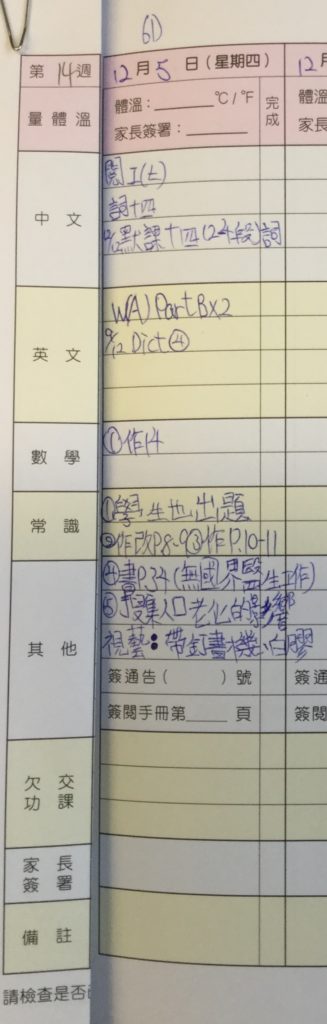 61
第14週
12月5日(星期四)
12月
量體溫
體溫：______°C/°F
家長簽署：______
完成
體溫
家長
中文
閱工(七)
詞十四
9/12默課十四(2-4段)詞
英文
W(A) Part B×2
9/12 Dict ④
數學
①作14
常識
①學生也出題
②作改P.8-9③作P.10-11
其他
④書P.34(無國界醫生工作)
⑤搜集人口老化的影響
視藝：帶釘書機、白膠
簽通告( )號
簽通
簽閱手冊第____頁
簽閱
欠交功課
家長簽署
備註
請檢查是否